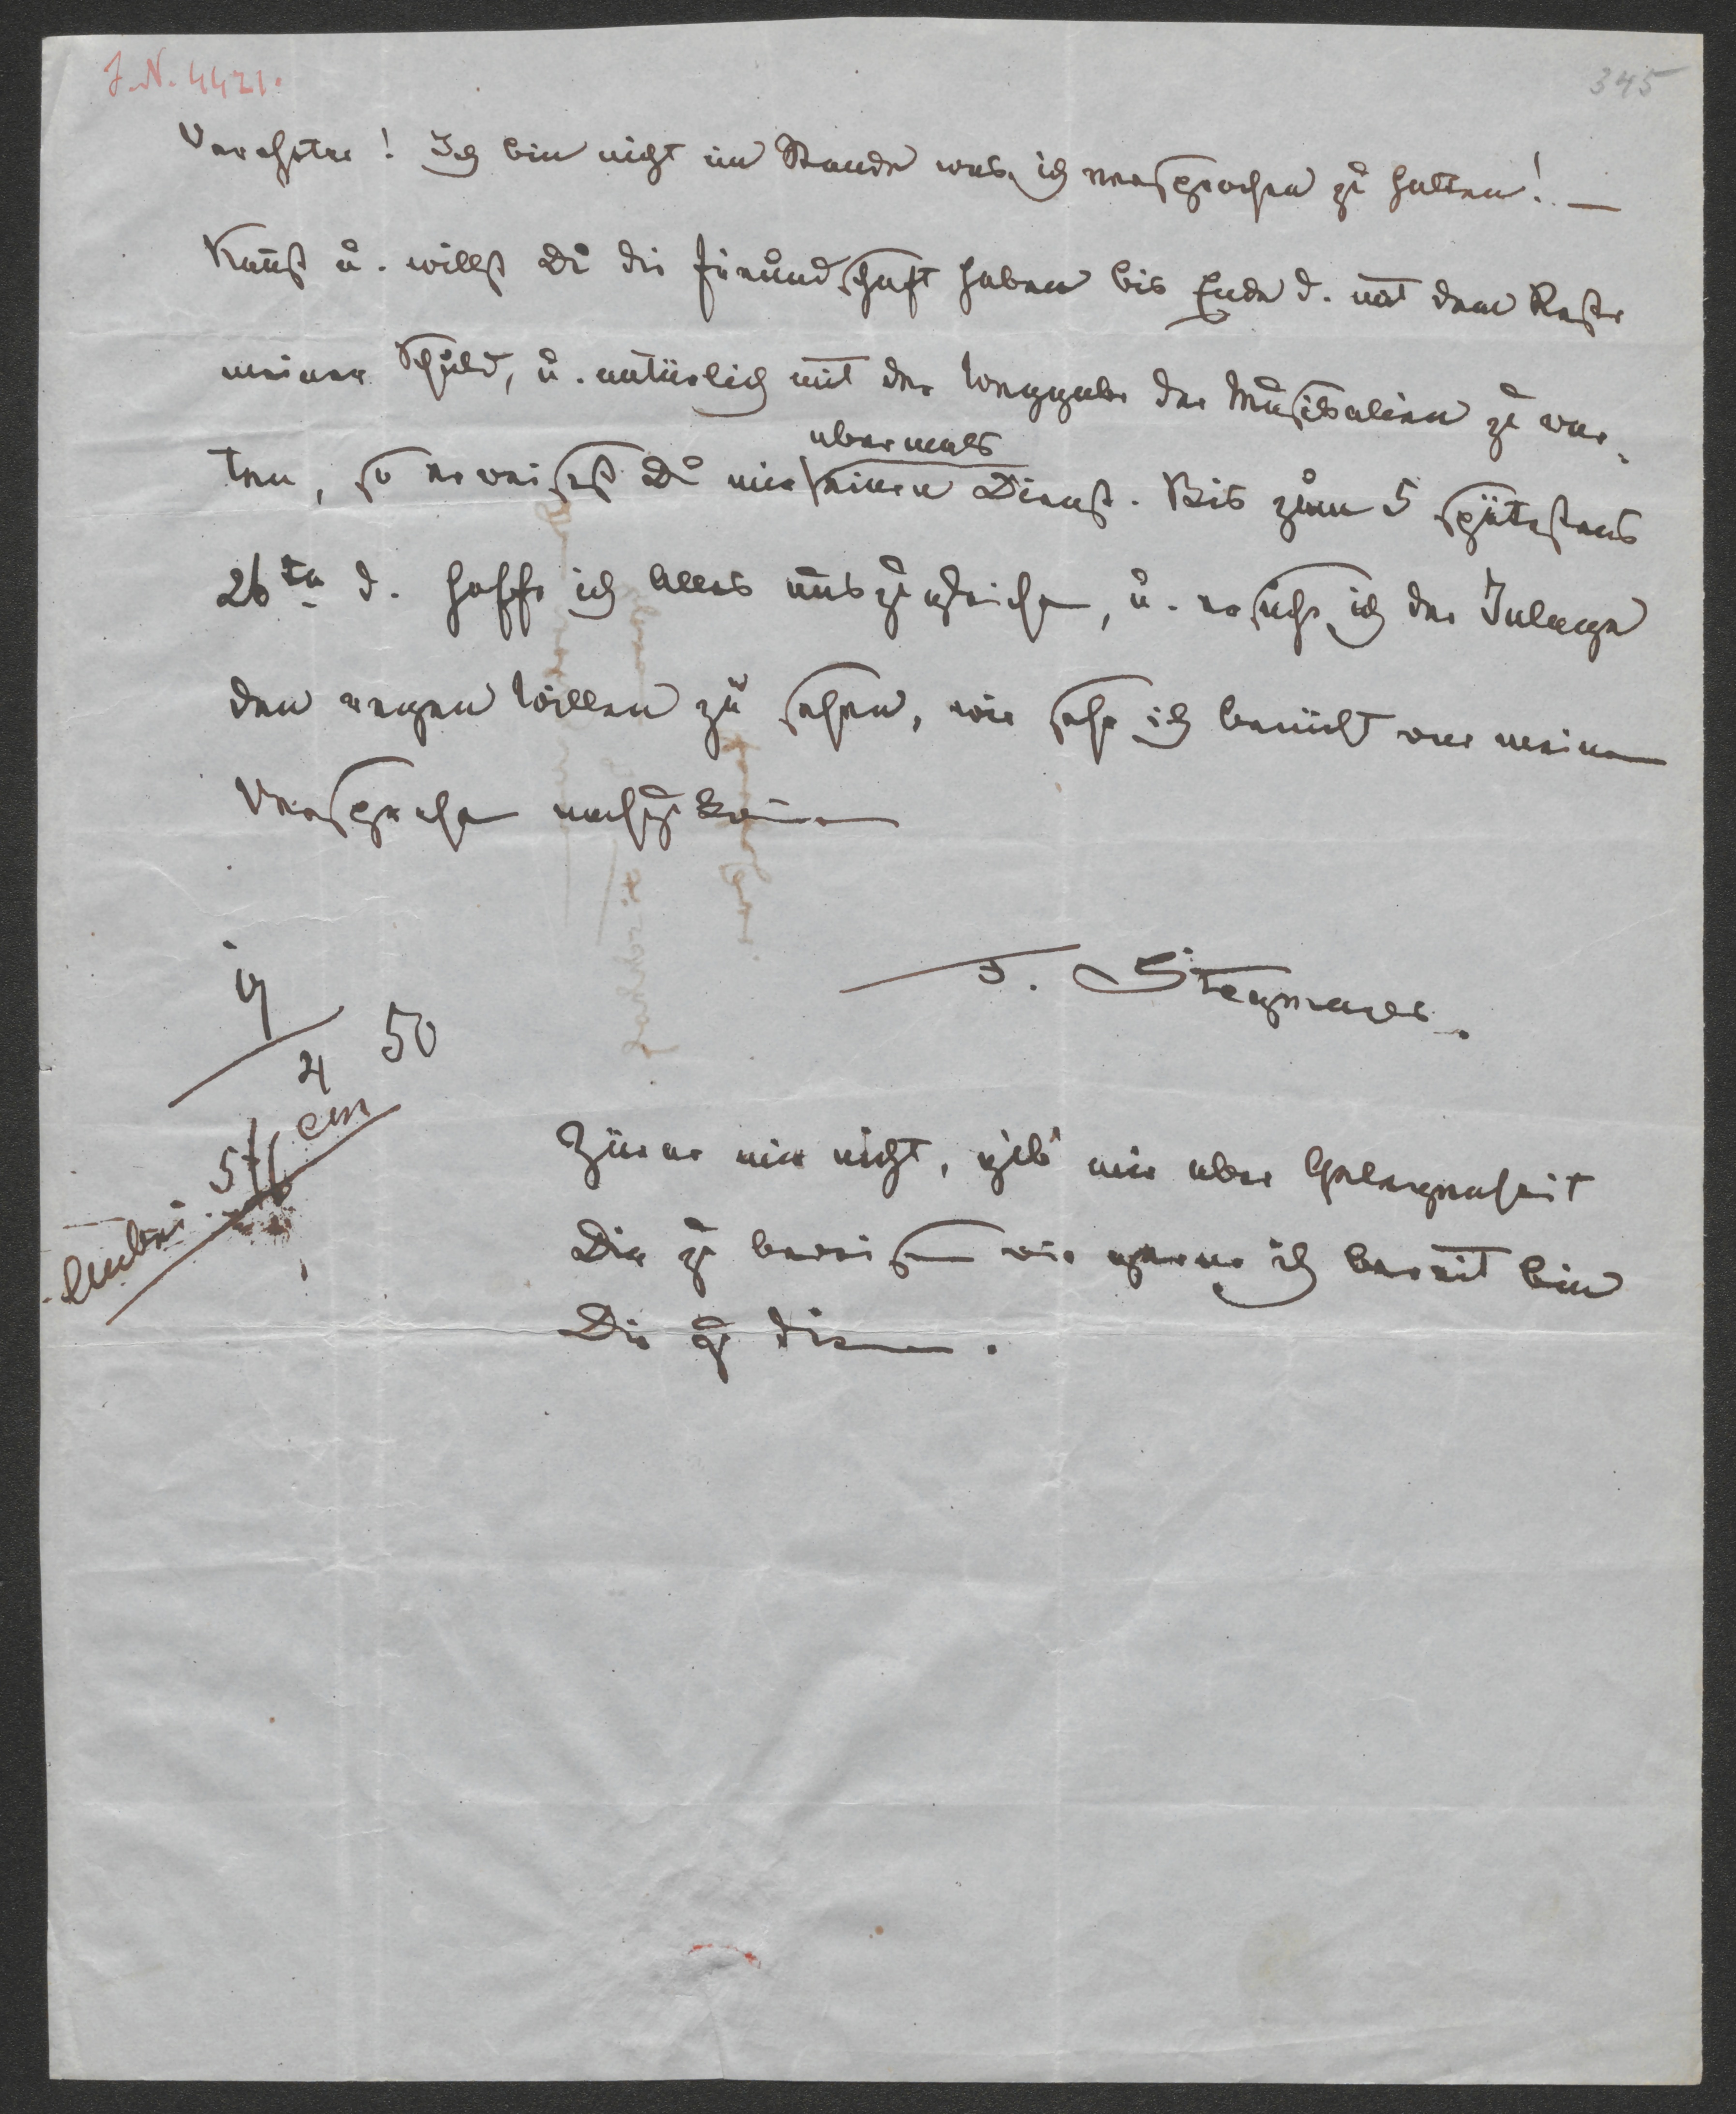 J.N. 4421.
345
Verehrter! Ich bin nicht im Stande was ich versprochen zu halten! —
Kan̄st u. willst Du die Freundschaft haben bis Ende d. mit dem Reste
meiner Schuld, u. natürlich mit der Weggabe der Musikalien zu war-
ten, so erweisest Du mir abermals einen Dienst. Bis zum 5 spätestens
26ten d. hoffe ich Alles auszugleichen, u. ersuche ich der Inlage
den regen Willen zu sehen, wie sehr ich bemüht war meinem
Versprechen nachzukom̄en
F. Stegmayer.
4 50
cm
57
Zürne mir nicht, gib mir aber Gelegenheit
Dir zu beweisen wie gerne ich bereit bin
Dir zu dienen.